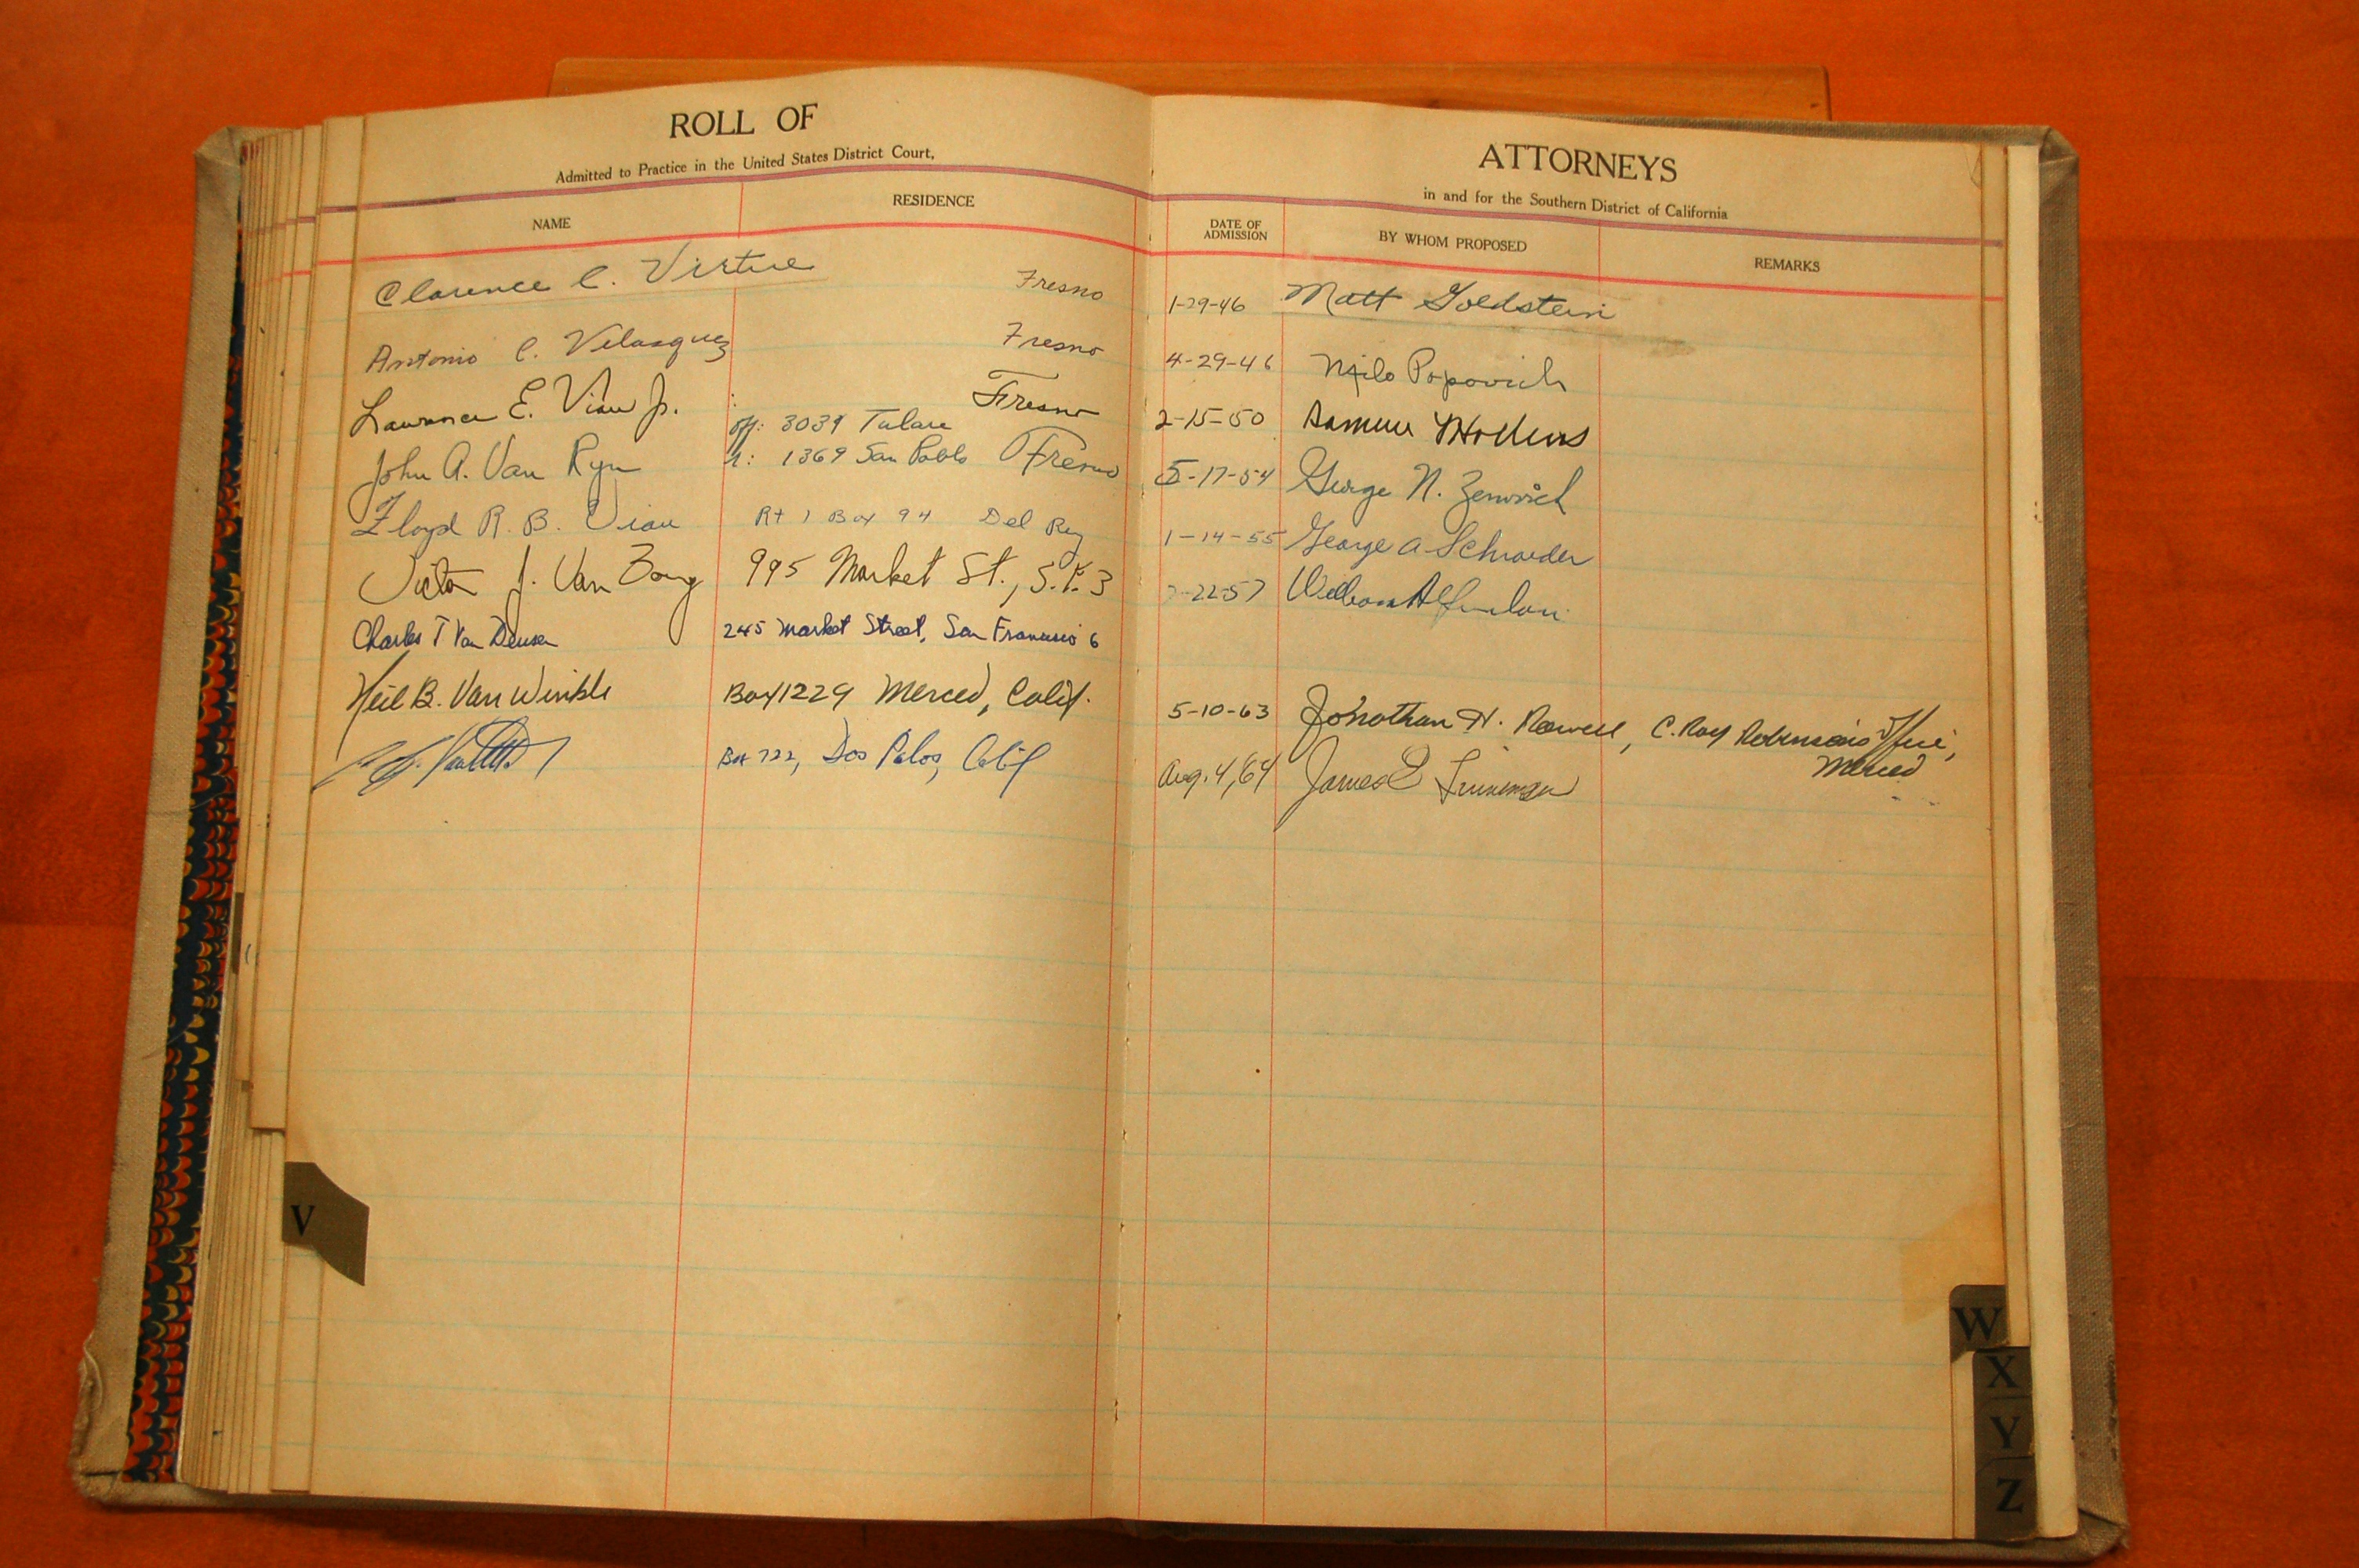 ROLL OF
Admitted to Practice in the United States District Court,
NAME RESIDENCE
Clarence C. Virtue Fresno
Antonio C. Velasquez Fresno
Lawrence E. Viau Jr. Fresno
off: 3039 Tulare
John A. Van Ryn r: 1369 San Pablo Fresno
Floyd R. B. Viau Rt 1 Box 94 Del Rey
Victor J. Van 995 Market St., S.F. 3
Charles T Van Deusen 245 Market Street, San Francisco 6
Neil B. Van Winkle Box 1229 Merced, Calif.
Box 722, Dos Palos, Calif
V
ATTORNEYS
in and for the Southern District of California
DATE OF ADMISSION BY WHOM PROPOSED REMARKS
1-29-46 Matt Goldstein
4-29-46 Milo Popovich
2-15-50
5-17-54 George N. Zenovich
1-14-55 George A Schroeder
-22-57
5-10-63 Jonathan H. Rowell, C. Ray Robinson's Office,
Merced
Aug. 4, 64 James E
W
X
Y
Z